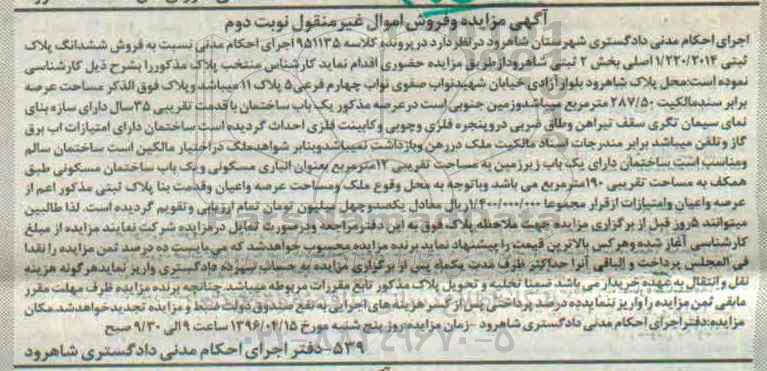 آگهی مزایده وفروش اموال غیر منقول نوبت دوم
اجرای احکام مدنی دادگستری شهرستان شاهرود درنظر دارد در پرونده کلاسه ۹۵۱۱۳۵ اجرای احکام مدنی نسبت به فروش ششدانگ پلاک
ثبتی ۱/۲۲۰/۲۰۱۴ اصلی بخش ۲ ثبتی شاهرود از طریق مزایده حضوری اقدام نماید کارشناس منتخب پلاک مذکور را بشرح ذیل کارشناسی
نموده است:محل پلاک شاهرود بلوار آزادی خیابان شهیدنواب صفوی نواب چهارم فرعی ۵ پلاک ۱۱ میباشد وپلاک فوق الذکر مساحت عرصه
برابر سندمالکیت ۲۸۷/۵۰ مترمربع میباشدوزمین جنوبی است درعرصه مذکور یک باب ساختمان با قدمت تقریبی ۳۵سال دارای سازه بنای
نمای سیمان تگری سقف تیرآهن وطاق ضربی دروپنجره فلزی وچوبی وکابینت فلزی احداث گردیده است ساختمان دارای امتیازات اب برق
گاز وتلفن میباشد برابر مندرجات اسناد مالکیت ملک دررهن وبازداشت نمیباشدوبنابر شواهدملک دراختیار مالکین است ساختمان سالم
ومناسب است ساختمان دارای یک باب زیرزمین به مساحت تقریبی ۱۲مترمربع بعنوان انباری مسکونی ویک باب ساختمان مسکونی طبق
همکف به مساحت تقریبی ۱۹۰مترمربع می باشد وباتوجه به محل وقوع ملک ومساحت عرصه واعیان وقدمت بنا پلاک ثبتی مذکور اعم از
عرصه واعیان وامتیازات ازقرار مجموعا ۱/۴۰۰/۰۰۰/۰۰۰ ریال معادل یکصدوچهل میلیون تومان تمام ارزیابی وتقویم گردیده است. لذا طالبین
میتوانند ۵روز قبل از برگزاری مزایده جهت ملاحظه پلاک فوق به این دفترمراجعه ودرصورت تمایل درمزایده شرکت نمایند مزایده از مبلغ
کارشناسی آغاز شده وهرکس بالاترین قیمت را پیشنهاد نماید برنده مزایده محسوب خواهدشد که می بایست ده درصد ثمن مزایده را نقدا
فی المجلس پرداخت و الباقی آنرا حداکثر ظرف مدت یکماه پس از برگزاری مزایده به حساب سپرده دادگستری واریز نمایدهرگونه هزینه
نقل وانتقال به عهده خریدار می باشد ضمنا تخلیه و تحویل پلاک مذکور تابع مقررات مربوطه میباشد. چنانچه برنده مزایده ظرف مهلت مقرر
مابقی ثمن مزایده را واریز ننمایدده درصد پرداختی پس از کسر هزینه های اجرایی به نفع صندوق دولت ضبط و مزایده تجدیدخواهدشد.مکان
مزایده:دفتراجرای احکام مدنی دادگستری شاهرود -زمان مزایده:روز پنج شنبه مورخ ۱۳۹۶/۰۴/۱۵ ساعت ۹ الی ۹/۳۰ صبح
۵۳۹-دفتر اجرای احکام مدنی دادگستری شاهرود
ParsNamadData
۰۲۱-۸۸۳۴۹۶۷۰-۵